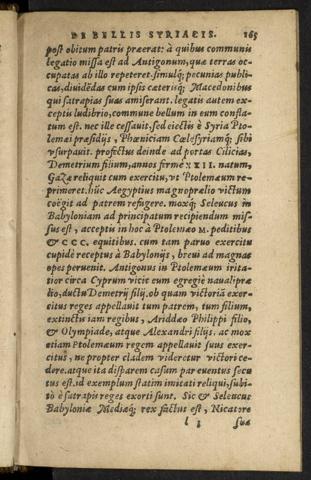 DE BELLIS SYRIACIS. 165
post obitum patris præerat: à quibus communis
legatio missa est ad Antigonum, quæ terras oc-
cupatas ab illo repeteret. simulq; pecunias publi-
cas, diuidēdas cum ipsis cæterisq; Macedonibus
qui satrapias suas amiserant. legatis autem ex-
ceptis ludibrio, commune bellum in eum confla-
tum est. nec ille cessauit. sed eiectis è Syria Pto-
lemæi præsidijs, Phœniciam Cœlesyriamq; sibi
vsurpauit. profectus deinde ad portas Cilicias,
Demetrium filium, annos fermè XXII. natum,
Gazæ reliquit cum exercitu, vt Ptolemæum re-
primeret. hūc Aegyptius magno prælio victum
coëgit ad patrem refugere. moxq; Seleucus in
Babyloniam ad principatum recipiendum mis-
sus est, acceptis in hoc à Ptolemæo M. peditibus
& CCC. equitibus. cum tam paruo exercitu
cupidè receptus à Babylonijs, breui ad magnas
opes peruenit. Antigonus in Ptolemæum irrita-
tior circa Cyprum vicit eum egregiè nauali præ-
lio, ductu Demetrij filij. ob quam victoriā exer-
citus reges appellauit tum patrem, tum filium,
extinctis iam regibus, Aridæo Philippi filio,
& Olympiade, atque Alexandri filijs. ac mox
etiam Ptolemæum regem appellauit suus exer-
citus, ne propter cladem videretur victori ce-
dere. atque ita disparem casum par euentus secu
tus est. id exemplum statim imitati reliqui, subi-
tò è satrapis reges exorti sunt. Sic & Seleucus
Babyloniæ Mediæq; rex factus est, Nicatore
l 3 suæ